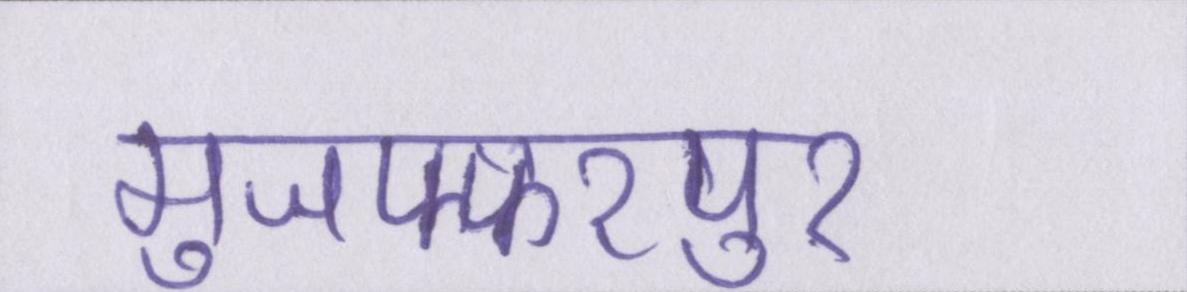 मुजफ्फरपुर